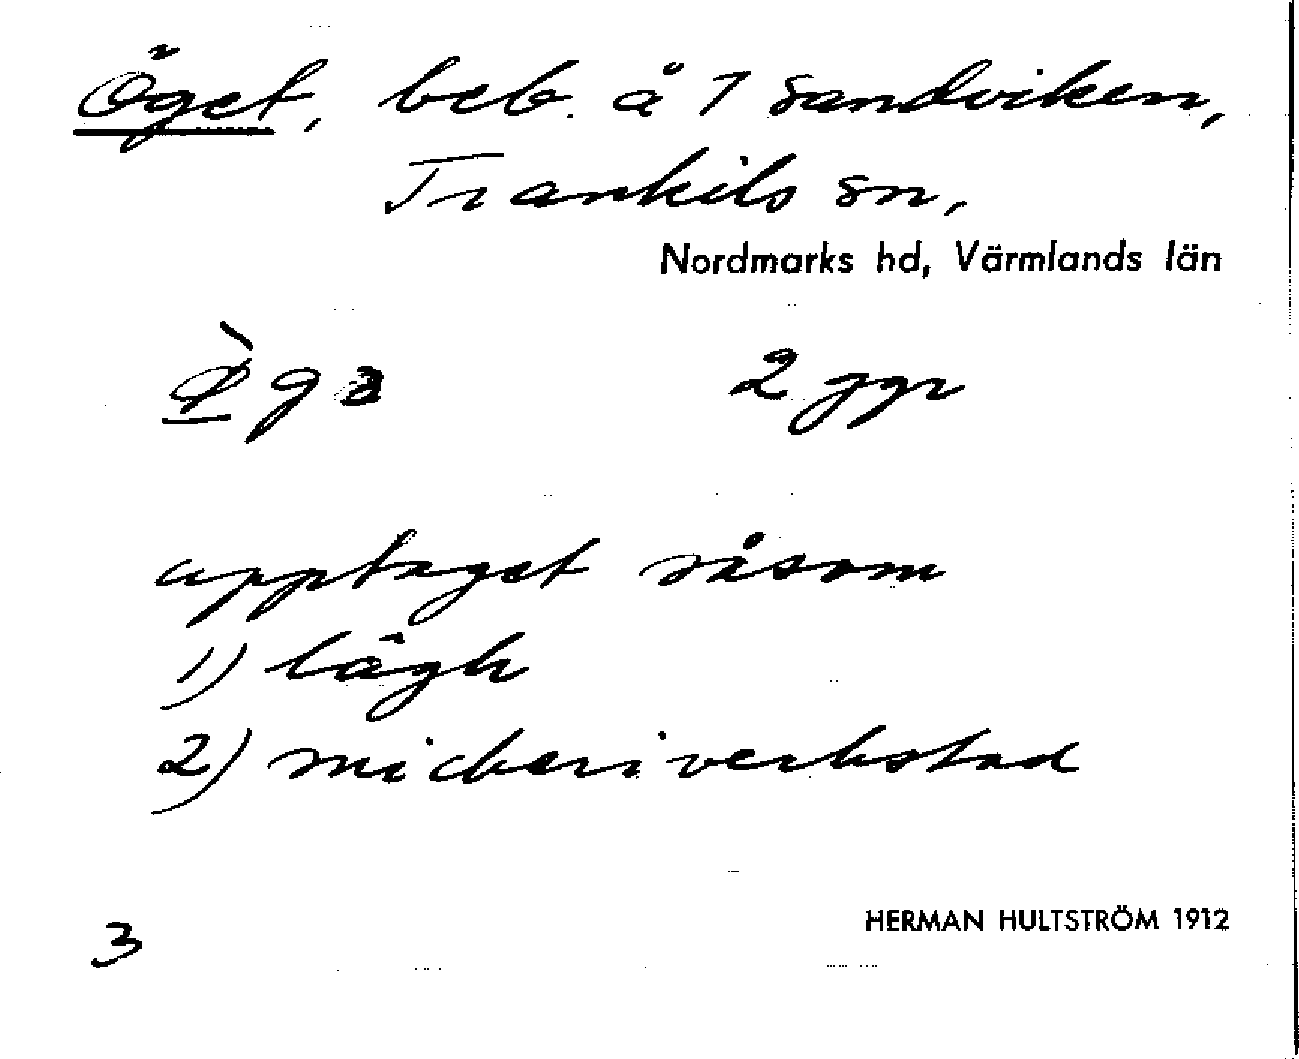 Öget, beb. å 1 Sandviken,
Trankils sn,
Nordmarks hd, Värmlands län
2 ggr
upptaget såsom
1) lägh
2) snickeriverkstad
3
HERMAN HULTSTRÖM 1912